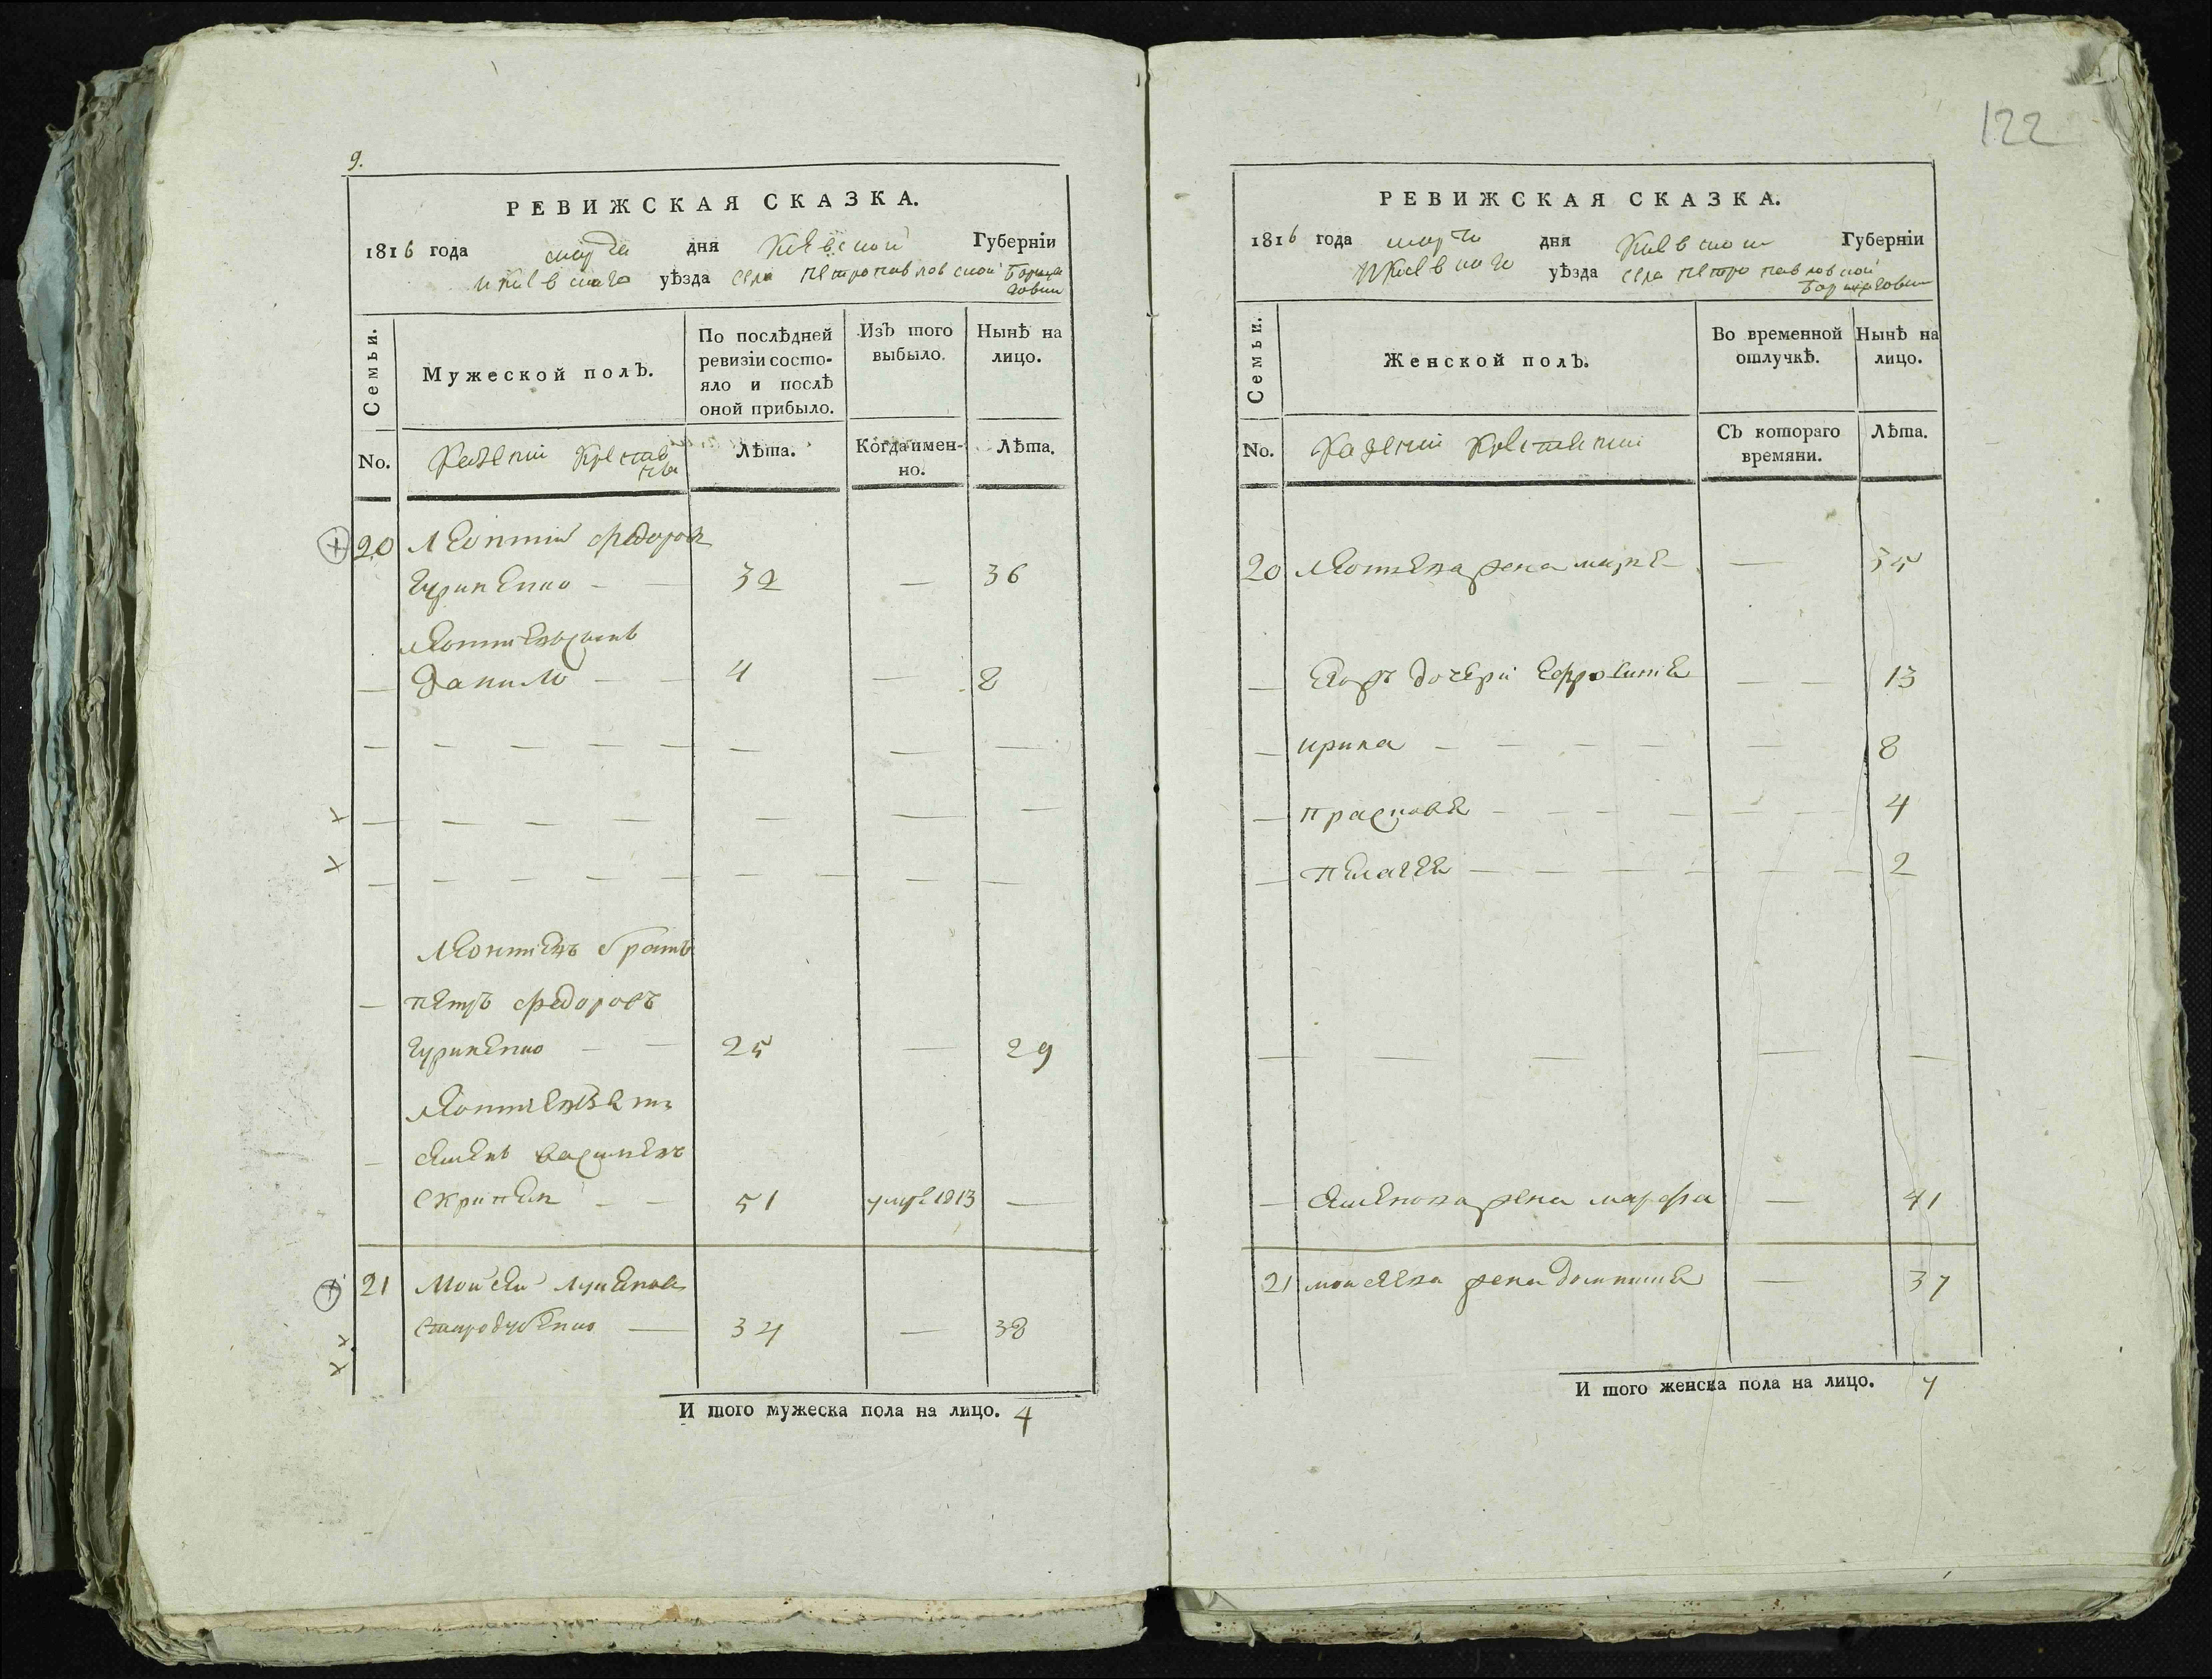 9.
РЕВИЖСКАЯ СКАЗКА.
1816 года марта дня Киевской Губерніи
И Киевскаго уѣзда села Петропавловской Борщаговки
Семьи.
Мужеской полЪ.
По послѣдней ревизіи состояло и послѣ оной прибыло.
ИзЪ того выбыло.
Нынѣ на лицо.
No.
Казенніи Крестьяни
Лѣта.
Когда именно.
Лѣта.
20 Леонтий Федоровъ
Гуриненко — 32 — 36
Леонтіевъ сынъ
— Данило — — 4 — 8
Леонтіевъ братъ
— Петръ Федоровъ
Гуриненко — — 25 — 29
Леонтіевъ зять
— Семенъ Васильевъ
Скрипель — — 51 умре 1813 —
21 Мойсей
Стародубенко — 34 — 38
И того мужеска пола на лицо. 4
122
РЕВИЖСКАЯ СКАЗКА.
1816 года марта дня Киевской Губерніи
И Киевскаго уѣзда села Петропавловской
Борщаговки
Семьи.
Женской полЪ.
Во временной отлучкѣ.
Нынѣ на лицо.
No.
Казенніи Крестьянки
СЪ котораго времяни.
Лѣта.
20 Леонтіева жена — 35
— дочери Ефросинія — — 13
— Ирина — — — — — 8
— Прасковія — — — — — — 4
— Пелагея — — — — — — 2
— Семенова жена Марфа — 41
21 Мойсеева жена Домникия — 37
И того женска пола на лицо. 7